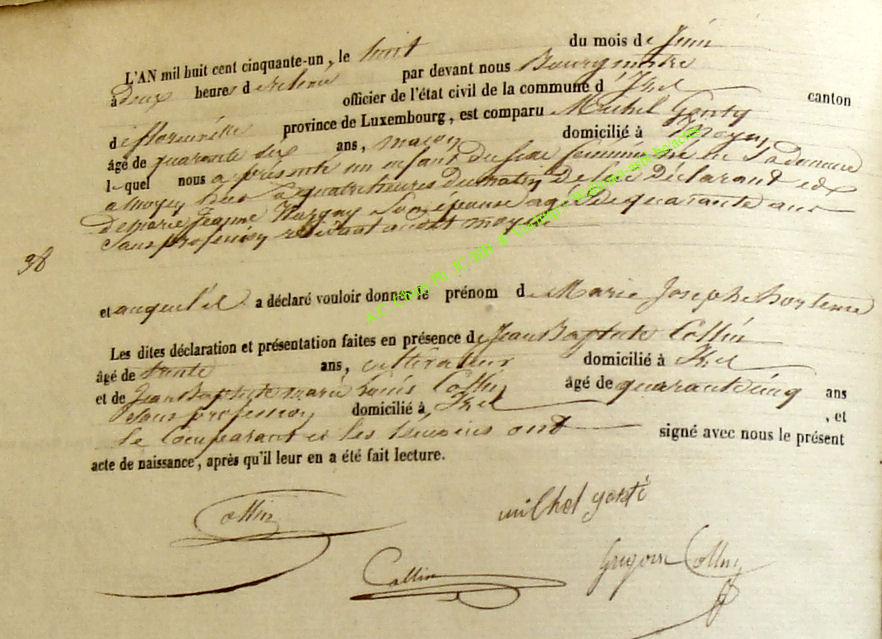 L'AN mil huit cent cinquante-un, le huit du mois de Juin
à Deux heures de relevée par devant nous Bourgmestre
officier de l'état civil de la commune d'Izel canton
de florenville province de Luxembourg, est comparu Michel Gonty
âgé de quarante six ans, maçon domicilié à Moyen
lequel nous a présenté un enfant du sexe féminin né
a moyen hier a quatre heures du matin De lui Déclarant et
de Marie Jeanne Son épouse agée de quarante ans
Sans profession résidant audit moyen
38
et auquel il a déclaré vouloir donner le prénom de Marie Joseph hortense
Les dites déclaration et présentation faites en présence de Jean Baptiste Collin
âgé de trente ans, cultivateur domicilié à Izel
et de Jean Baptiste marie Louis Collin âgé de quarante cinq ans
Sans profession domicilié à Izel, et
le Comparant et les témoins ont signé avec nous le présent
acte de naissance, après qu'il leur en a été fait lecture.
Collin
michel gonti
Collin
Grégoire Collin